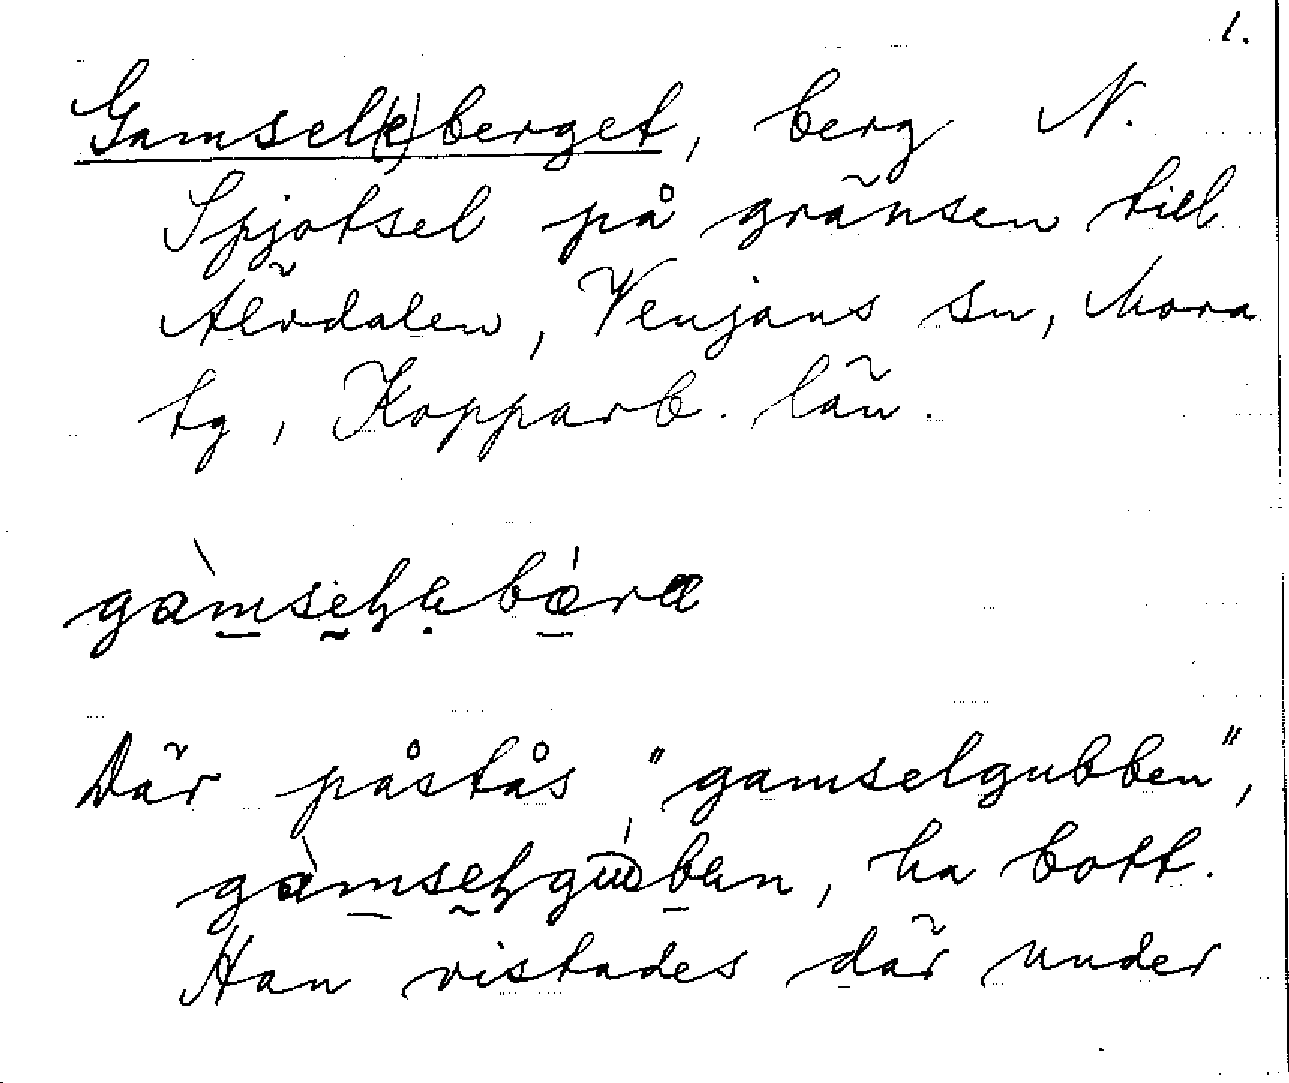 1.
Gamsel(e)berget, berg N.
Spjotsel på gränsen till
Älvdalen, Venjans sn, Mora
tg, Kopparb. län.
Där påstås "gamselgubben",
ha bott.
Han vistades där under